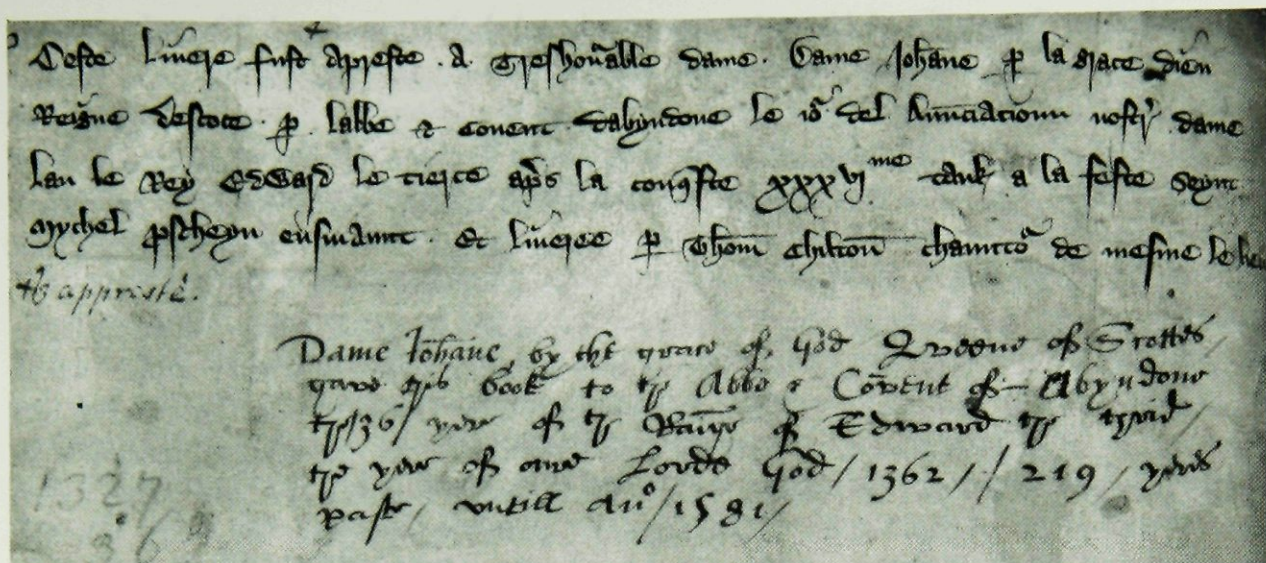 Ceste livere fust apreste . a . treshoñable dame . Dame Johane p la grace dieu
Reigne descoce . p . labbe & covent dabyndone le io del Anunciacioun nostr dame
lan le Rey Edward le tierce aps la conqste xxxvi me tank a la feste seynt
Mychel pscheyn ensuiant . Et liveree p Thom Chiltoun de mesme le lieu
appreste.
Dame Johane, by the grace of God Queene of Scottes,
gave this book to the Abbe & Covent of Abyndone
the /36/ yere of the of Edward the thrid,
the yere of oure Lorde God / 1362 / / 219 / yeres
paste, untill Ano / 1581 /
1327